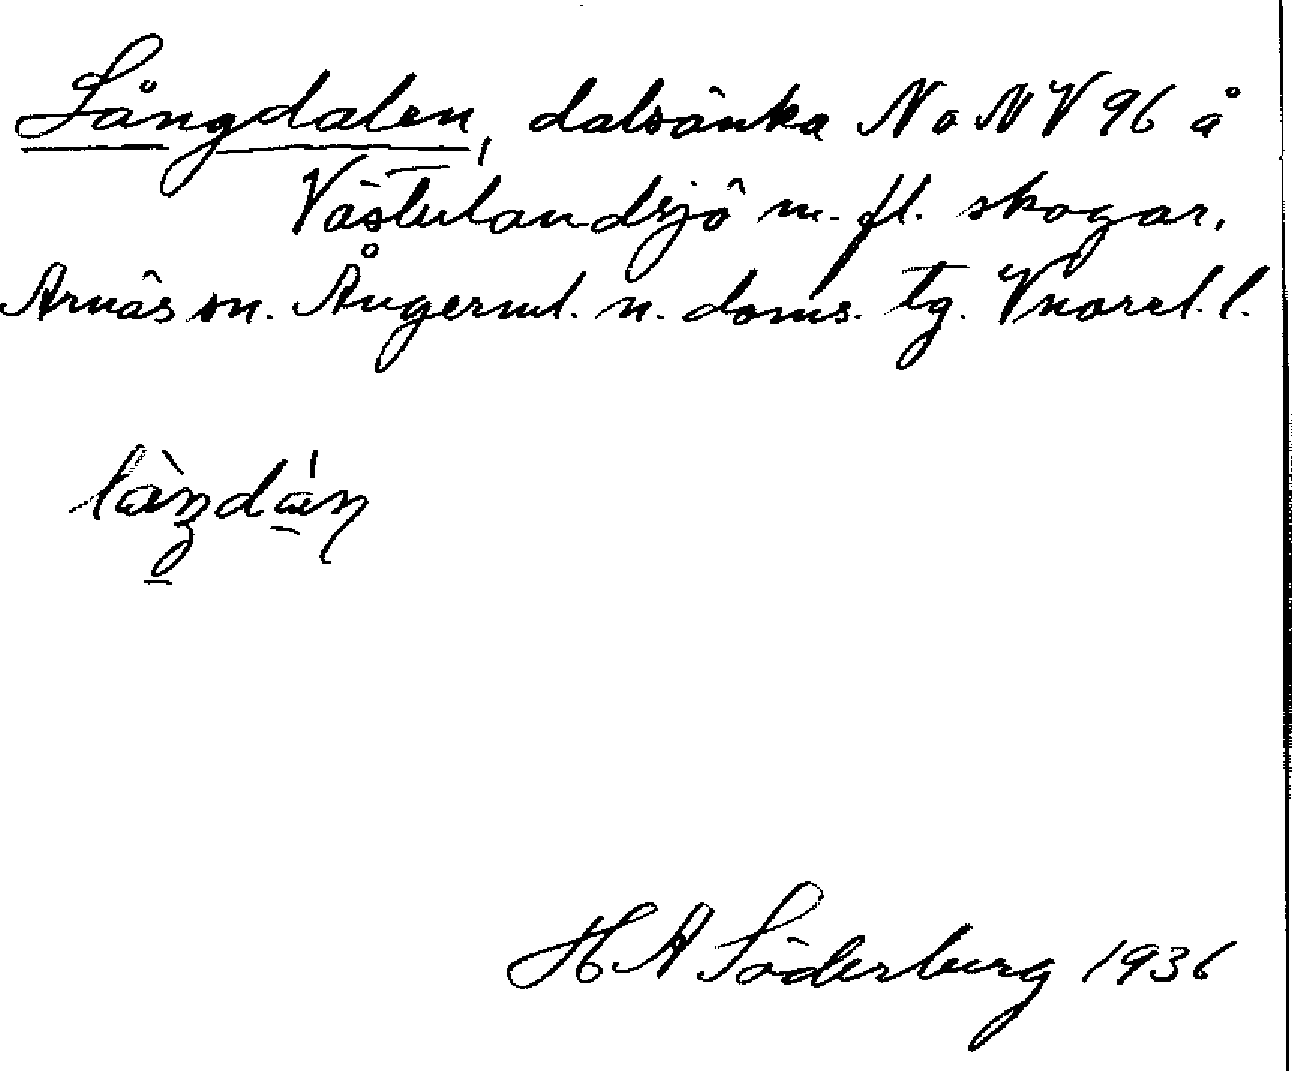 Långdalen, dalsänka N o NV 96 å
Västulandsjö m. fl. skogar.
Arnäs sn. Ångerml. n. doms. tg. Vnorrl. l.
H A Söderberg 1936